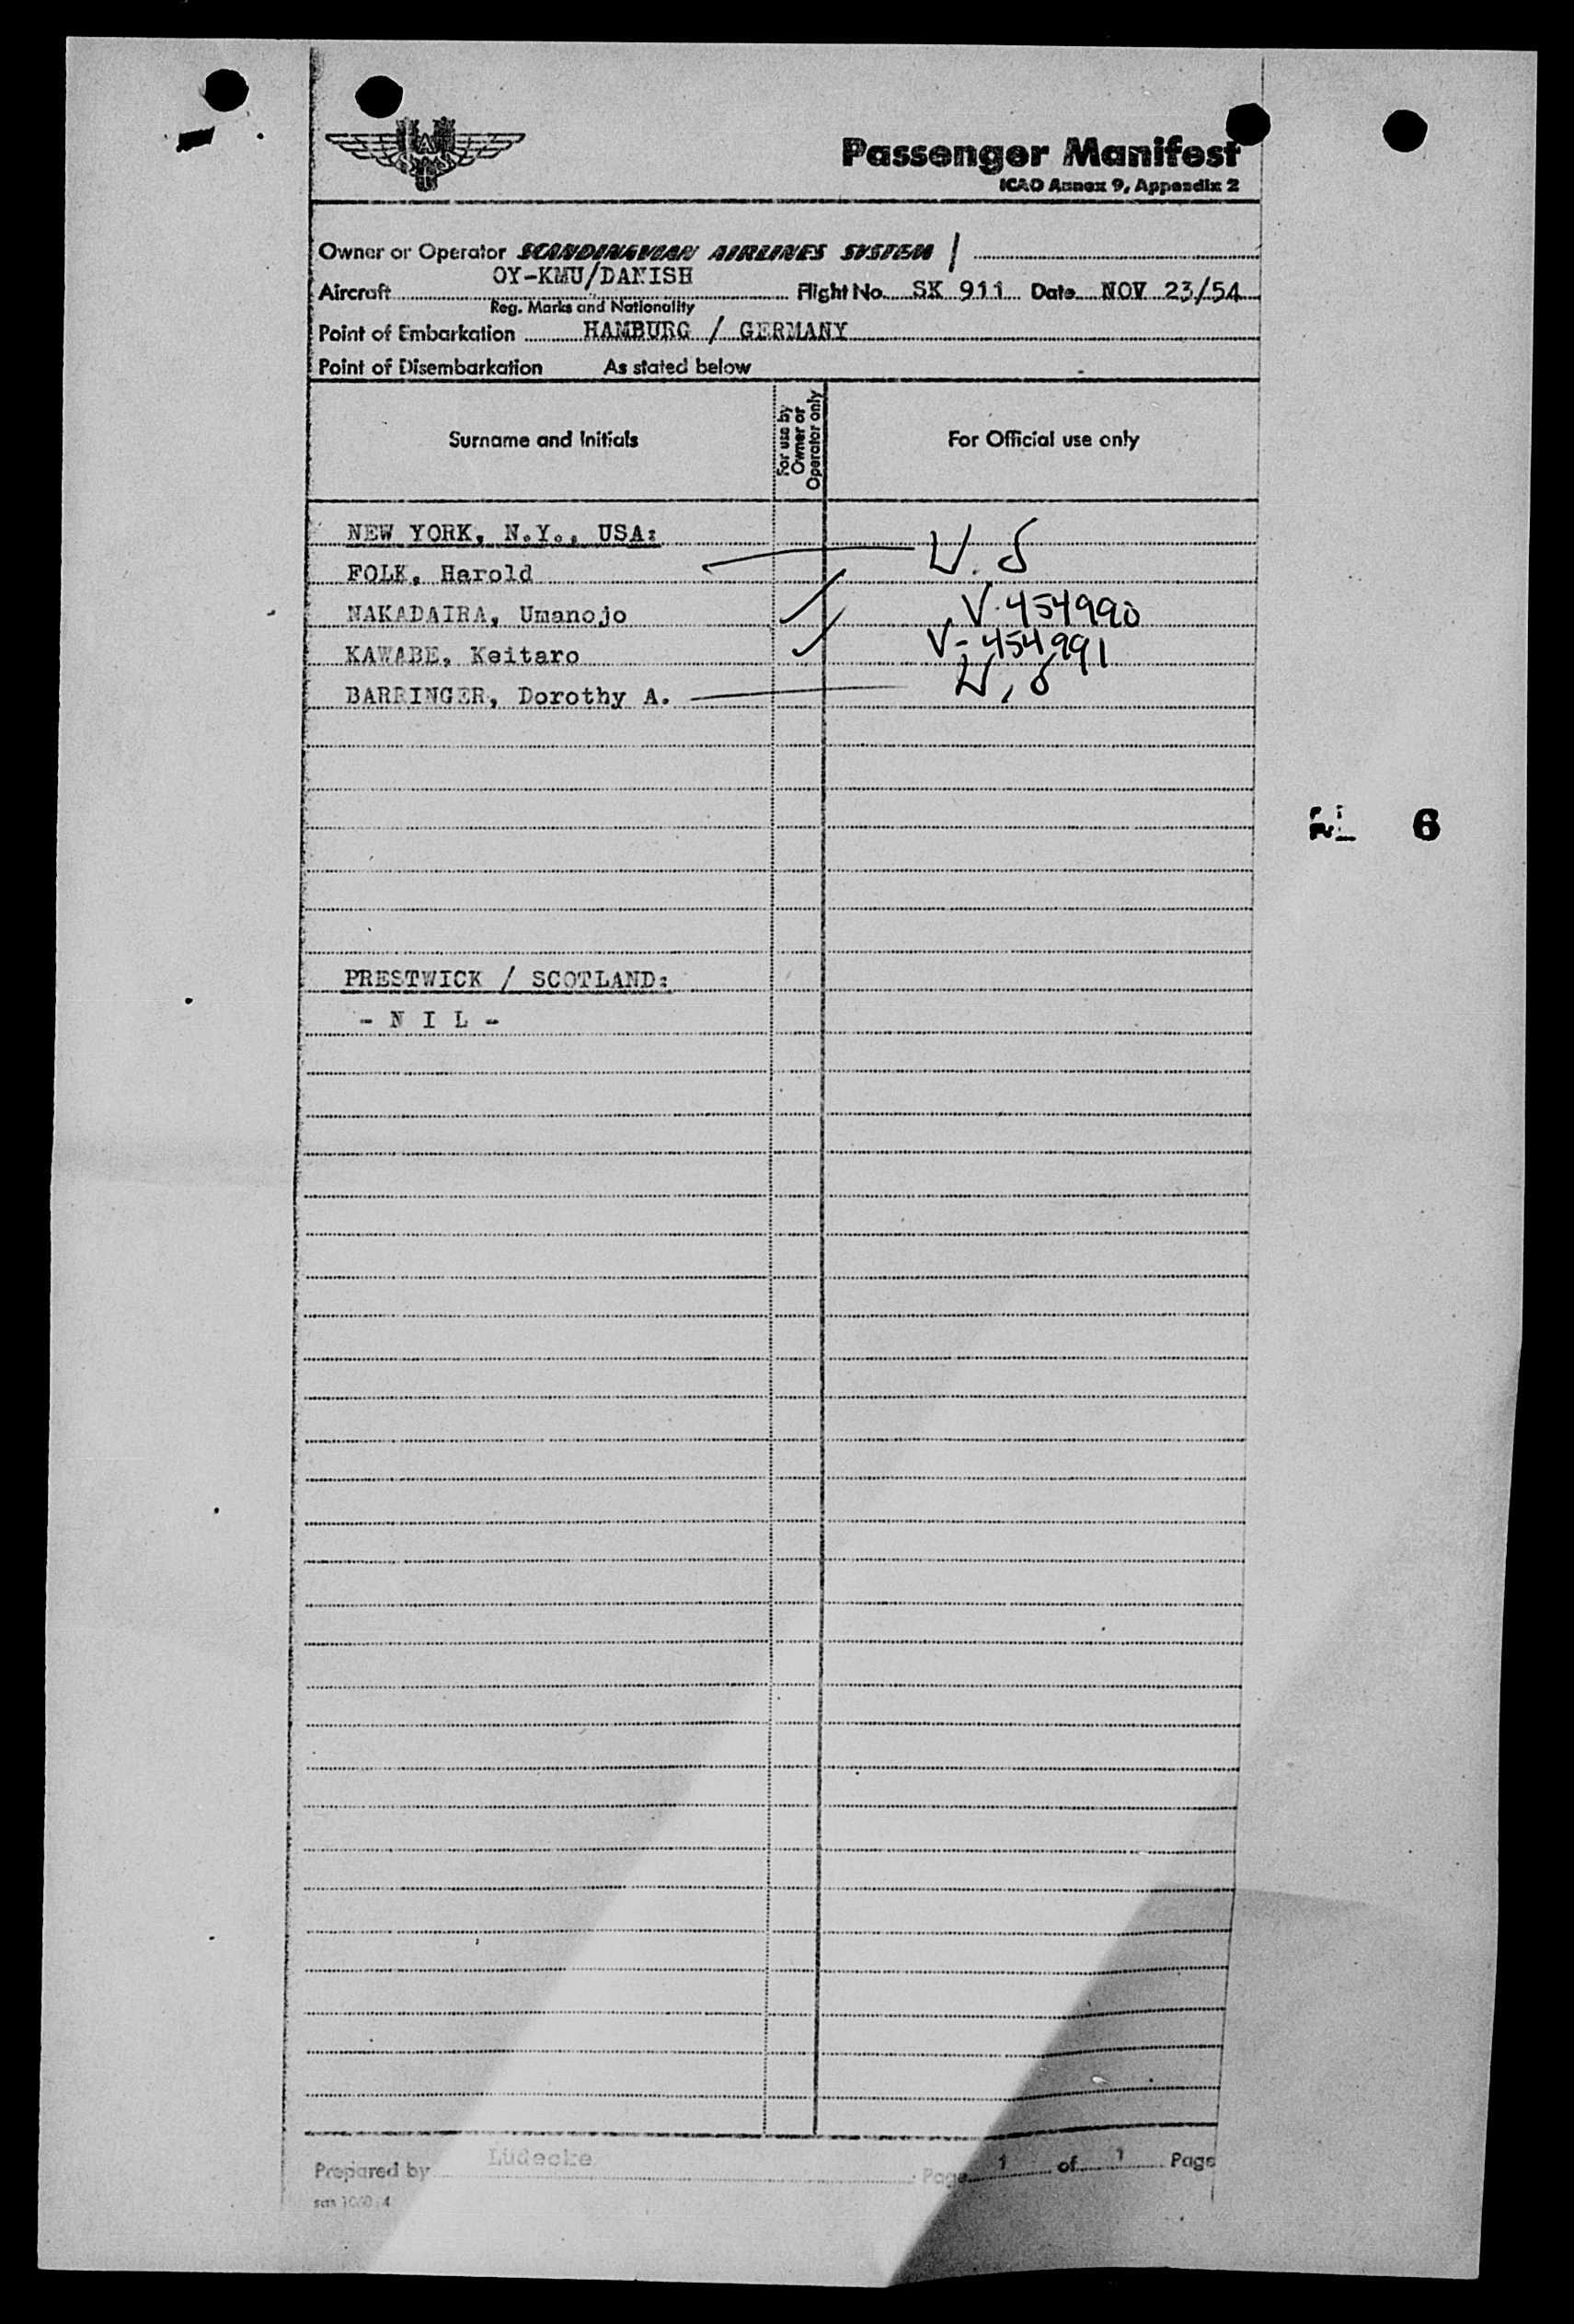 SAS
Passenger Manifest
ICAO Annex 9, Appendix 2
Owner or Operator SCANDINAVIAN AIRLINES SYSTEM /
OY-KMU/DANISH
Aircraft Flight No. SK 911 Date NOV 23/54
Reg. Marks and Nationality
Point of Embarkation HAMBURG / GERMANY
Point of Disembarkation As stated below
Surname and Initials For use by Owner or Operator only For Official use only
NEW YORK, N.Y., USA:
FOLK, Harold U.S
NAKADAIRA, Umanojo V-454990
KAWABE, Keitaro V-454991
BARRINGER, Dorothy A. U.S
6
PRESTWICK / SCOTLAND:
- N I L -
Prepared by Lüdecke Page 1 of 1 Page